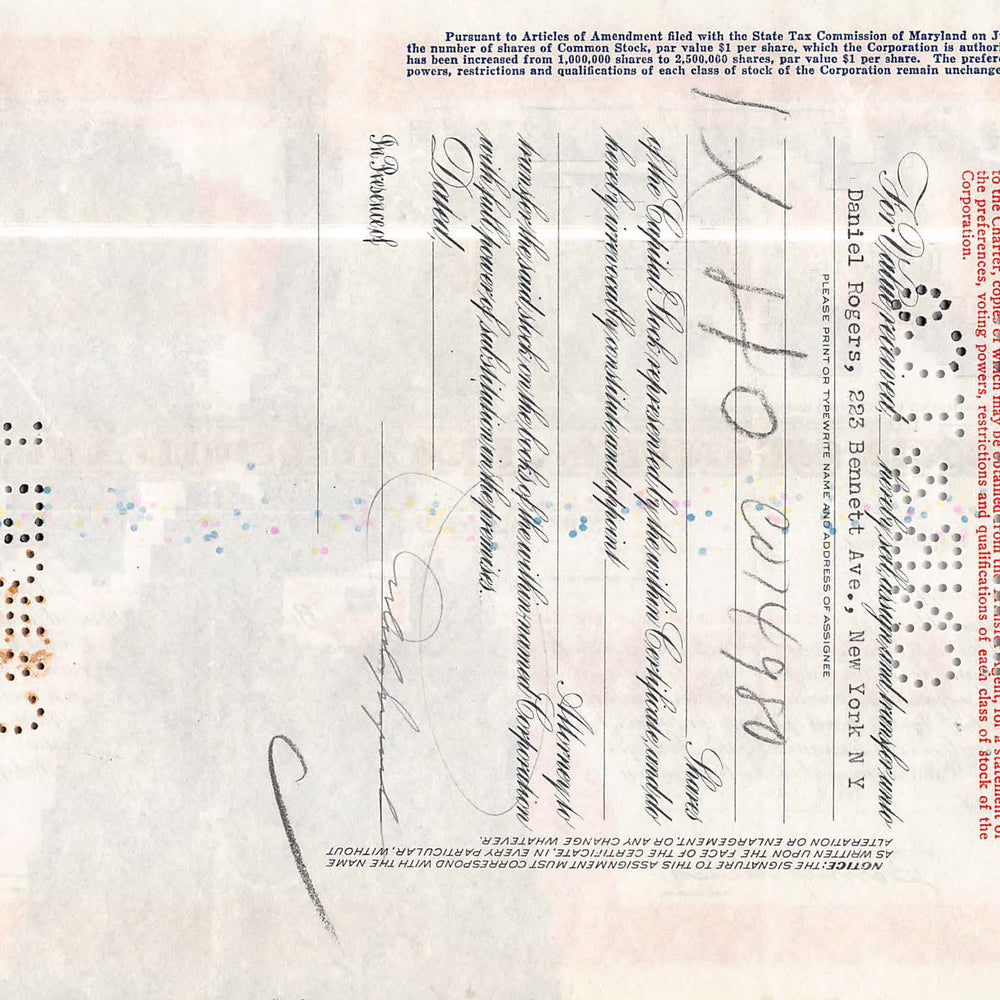 Pursuant to Articles of Amendment filed with the State Tax Commission of Maryland on
the number of shares of Common Stock, par value $1 per share, which the Corporation is
has been increased from 1,000,000 shares to 2,500,000 shares, par value $1 per share. The
powers, restrictions and qualifications of each class of stock of the Corporation remain
to the Charter, copies of which may be obtained from the Transfer Agent, for a statement of
the preferences, voting powers, restrictions and qualifications of each class of stock of the
Corporation.
For Value received, hereby sell, assign and transfer unto
Daniel Rogers, 223 Bennett Ave., New York N Y
PLEASE PRINT OR TYPEWRITE NAME AND ADDRESS OF ASSIGNEE
Shares
of the Capital Stock represented by the within Certificate, and do
hereby irrevocably constitute and appoint
Attorney to
transfer the said stock on the books of the within-named Corporation
with full power of substitution in the premises.
Dated,
In Presence of
NOTICE: THE SIGNATURE TO THIS ASSIGNMENT MUST CORRESPOND WITH THE NAME
AS WRITTEN UPON THE FACE OF THE CERTIFICATE, IN EVERY PARTICULAR, WITHOUT
ALTERATION OR ENLARGEMENT, OR ANY CHANGE WHATEVER.